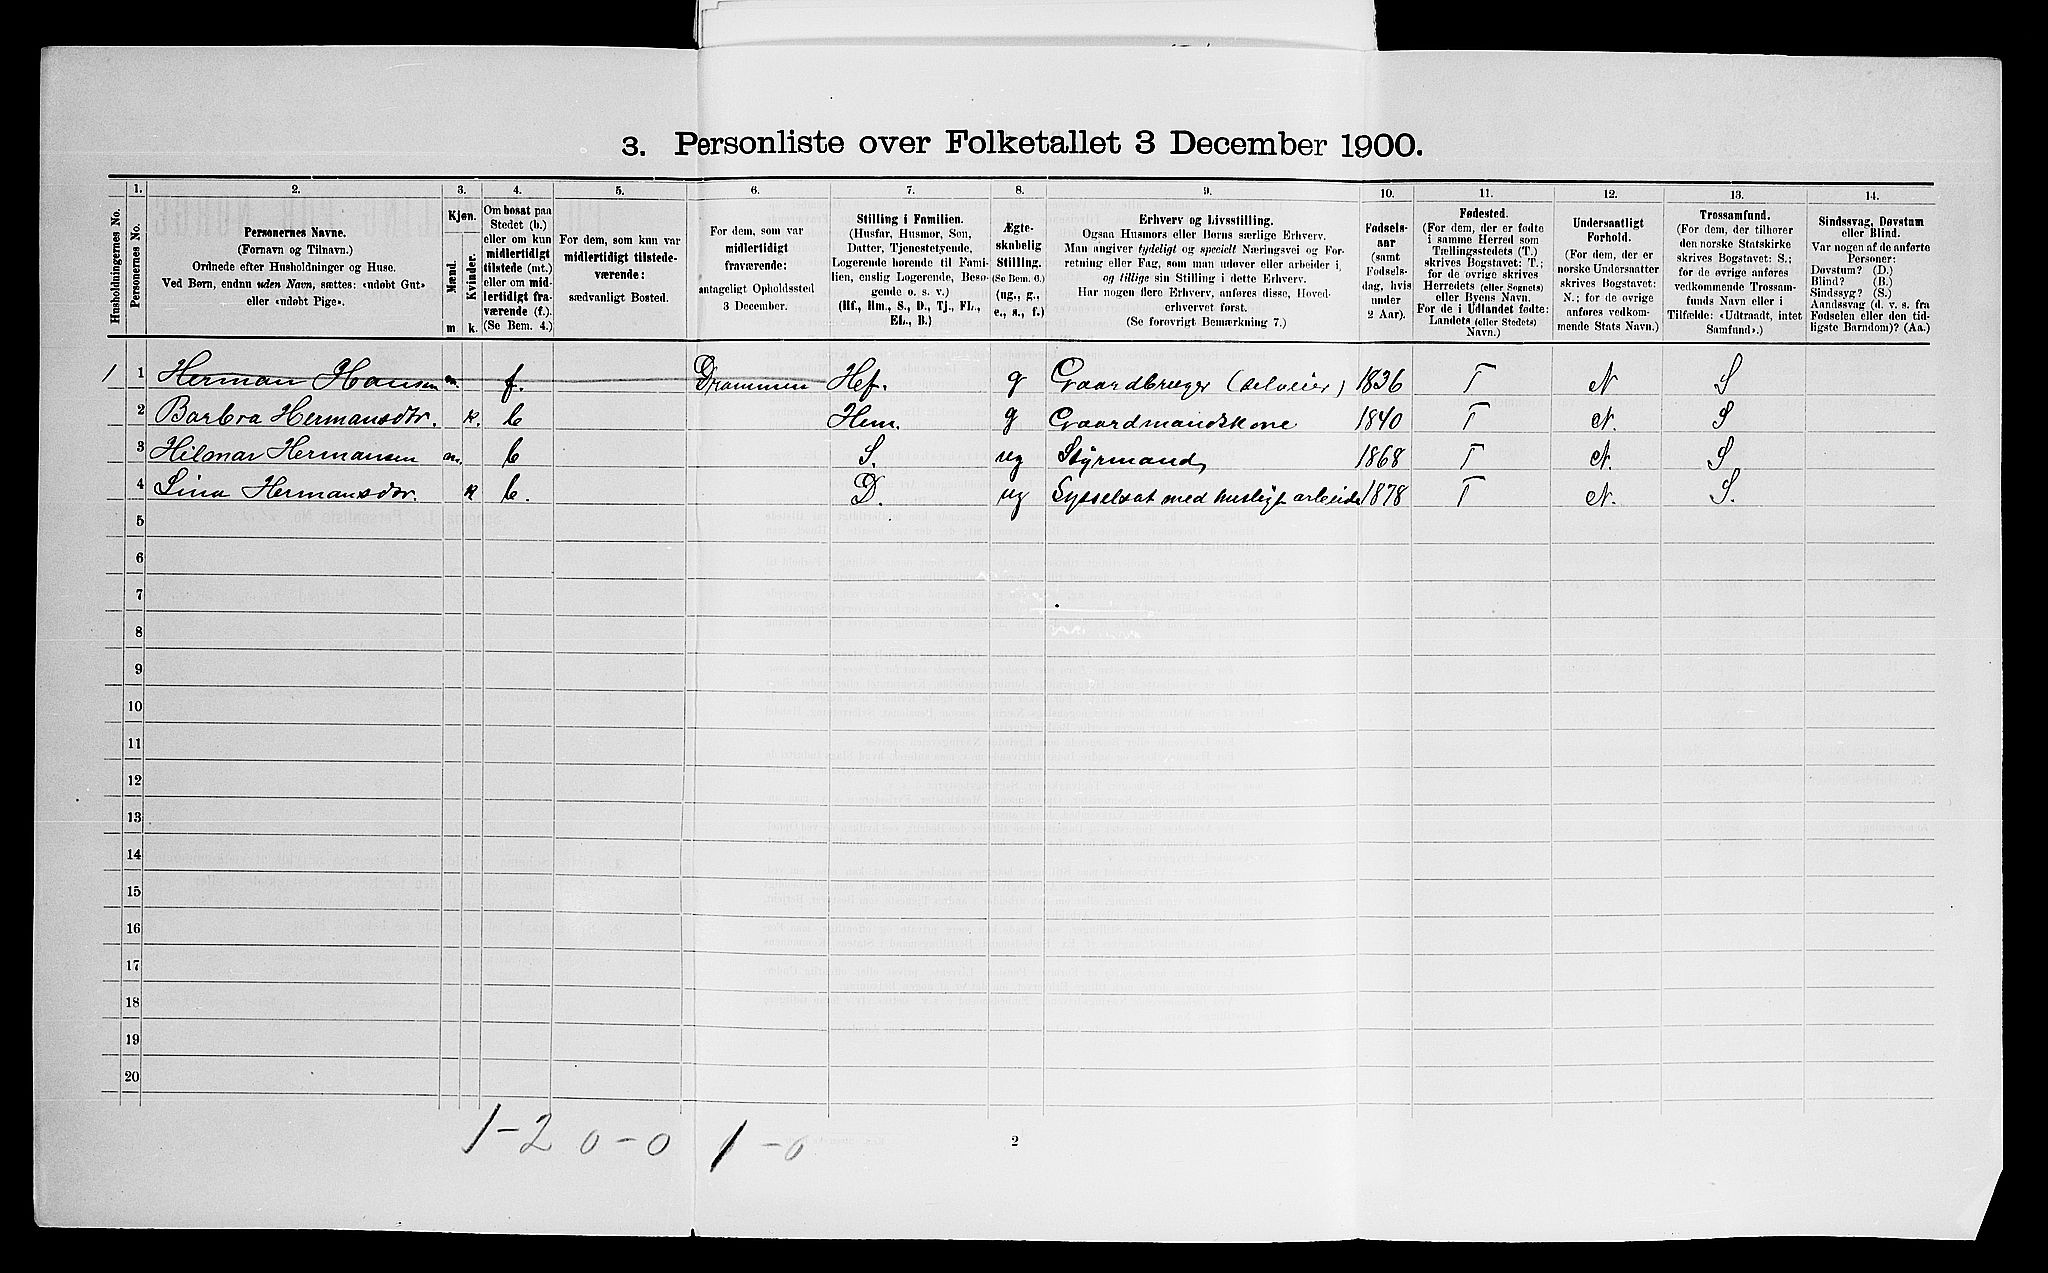 3. Personliste over Folketallet 3 December 1900.
Husholdningernes No.
1.
Personernes No.
2.
Personernes Navne.
(Fornavn og Tilnavn.)
Ordnede efter Husholdninger og Huse.
Ved Børn, endnu uden Navn, sættes: «udøbt Gut»
eller «udøbt Pige».
3.
Kjøn.
Mænd.
Kvinder.
m. k.
4.
Om bosat paa
Stedet (b.)
eller om kun
midlertidigt
tilstede (mt.)
eller om mid-
lertidigt fra-
værende (f.).
(Se Bem. 4.)
5.
For dem, som kun var
midlertidigt tilstede-
værende:
sædvanligt Bosted.
6.
For dem, som var
midlertidigt
fraværende:
antageligt Opholdssted
3 December.
7.
Stilling i Familien.
(Husfar, Husmor, Søn,
Datter, Tjenestetyende,
Logerende hørende til Fami-
lien, enslig Logerende, Besø-
gende o. s. v.)
(Hf., Hm., S., D., Tj., FL.,
EL., B.)
8.
Ægte-
skabelig
Stilling.
(Se Bem. 6.)
(ug., g.,
e., s., f.)
9.
Erhverv og Livsstilling.
Ogsaa Husmors eller Børns særlige Erhverv.
Man angiver tydeligt og specielt Næringsvei og For-
retning eller Fag, som man udøver eller arbeider i,
og tillige sin Stilling i dette Erhverv.
Har nogen flere Erhverv, anføres disse, Hoved-
erhvervet først.
(Se forøvrigt Bemærkning 7.)
10.
Fødsels-
aar
(samt
Fødsels-
dag, hvis
under
2 Aar).
11.
Fødested.
(For dem, der er fødte
i samme Herred som
Tællingsstedets (T.)
skrives Bogstavet: T.;
for de øvrige skrives
Herredets (eller Sognets)
eller Byens Navn.
For de i Udlandet fødte:
Landets (eller Stedets)
Navn.)
12.
Undersaatligt
Forhold.
(For dem, der er
norske Undersaatter
skrives Bogstavet:
N.; for de øvrige
anføres vedkom-
mende Stats Navn.)
13.
Trossamfund.
(For dem, der tilhører
den norske Statskirke
skrives Bogstavet: S.;
for de øvrige anføres
vedkommende Trossam-
funds Navn eller i
Tilfælde: «Udtraadt, intet
Samfund».)
14.
Sindssvag, Døvstum
eller Blind.
Var nogen af de anførte
Personer:
Døvstum? (D.)
Blind? (B.)
Sindssyg? (S.)
Aandssvag (d. v. s. fra
Fødselen eller den tid-
ligste Barndom)? (Aa.)
1 1 Herman Hansen m. f. Drammen Hf. g Gaardbruger (selveier) 1836 T N. S
2 Barbra Hermansdtr. k. b Hm. g Gaardmandskone 1840 T N. S
3 Hilmar Hermansen m. b S. ug Styrmand 1868 T N. S
4 Lina Hermansdtr. k b. D. ug Sysselsat med husligt arbeide 1878 T N. S.
5
6
7
8
9
10
11
12
13
14
15
16
17
18
19
20
1-2 0-0 1-0
2